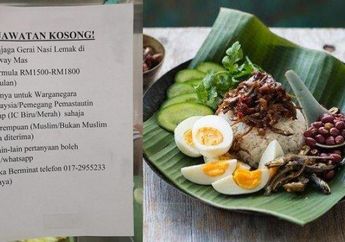 JAWATAN KOSONG!
jaga Gerai Nasi Lemak di
way Mas
rmula RM1500-RM1800
ulan)
nya untuk Warganegara
laysia/Pemegang Pemastautin
ap (IC Biru/Merah) sahaja
rempuan (Muslim/Bukan Muslim
n diterima)
in-lain pertanyaan boleh
/whatsapp
ka Berminat telefon 017-2955233
aya)